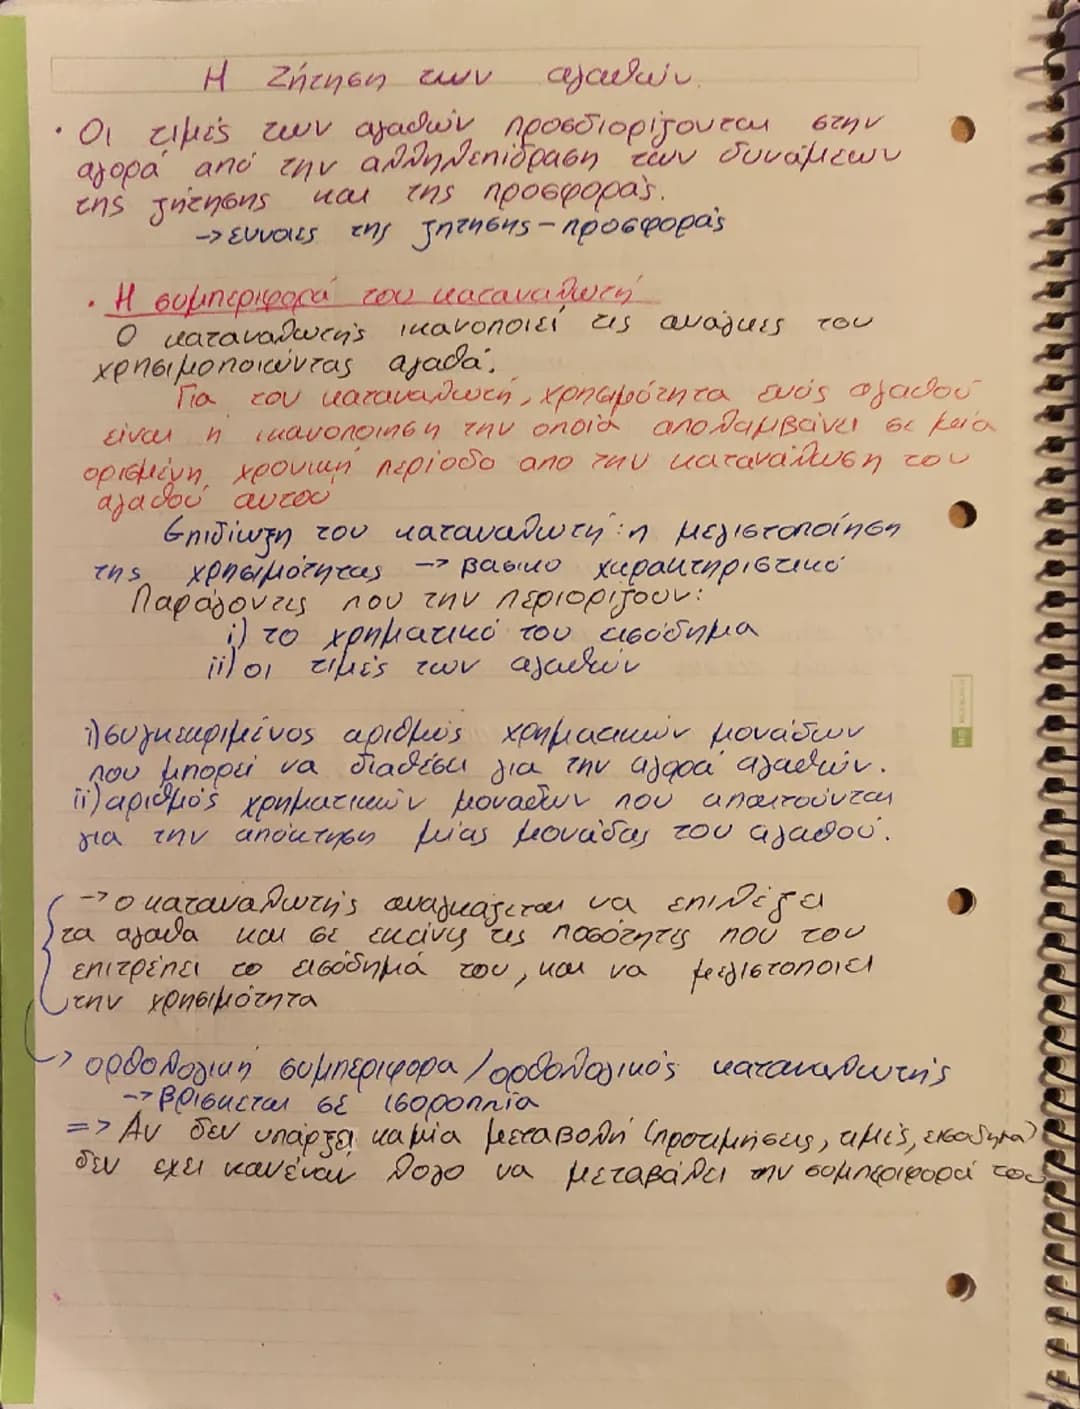 Η Ζήτηση των αγαθών
· Οι τιμές των αγαθών προσδιορίζονται στην
αγορά από την αλληλεπίδραση των δυνάμεων
της ζήτησης και της προσφοράς.
-> έννοιες της ζήτησης - προσφοράς
· Η συμπεριφορά του καταναλωτή
Ο καταναλωτής ικανοποιεί τις ανάγκες του
χρησιμοποιώντας αγαθά.
Για τον καταναλωτή, χρησιμότητα ενός αγαθού
είναι η ικανοποίηση την οποία απολαμβάνει σε μεία
ορισμένη χρονική περίοδο απο την κατανάλωση του
αγαθού αυτου
Επιδίωξη του καταναλωτή: η μεγιστοποίηση
της χρησιμότητας -> βασικο χαρακτηριστικό
Παράγοντες που την περιορίζουν:
i) το χρηματικό του εισόδημα
ii) οι τιμές των αγαθών
i) συγκεκριμένος αριθμός χρηματικών μονάδων
που μπορεί να διαθέσει για την αγορά αγαθών.
ii) αριθμός χρηματικών μοναδων που απαιτούνται
για την απόκτηση μίας μονάδας του αγαθού.
-> ο καταναλωτής αναγκάζεται να επιλέξει
τα αγαθα και σε εκείνες τις ποσότητες που του
επιτρέπει το εισόδημά του, και να μεγιστοποιεί
την χρησιμότητα
-> ορθολογική συμπεριφορα / ορθολογικός καταναλωτής
-> βρίσκεται σε ισορροπία
=> Αν δεν υπάρξει καμία μεταβολή (προτιμήσεις, τιμές, εισόδημα)
δεν εχει κανέναν λογο να μεταβάλει την συμπεριφορά του